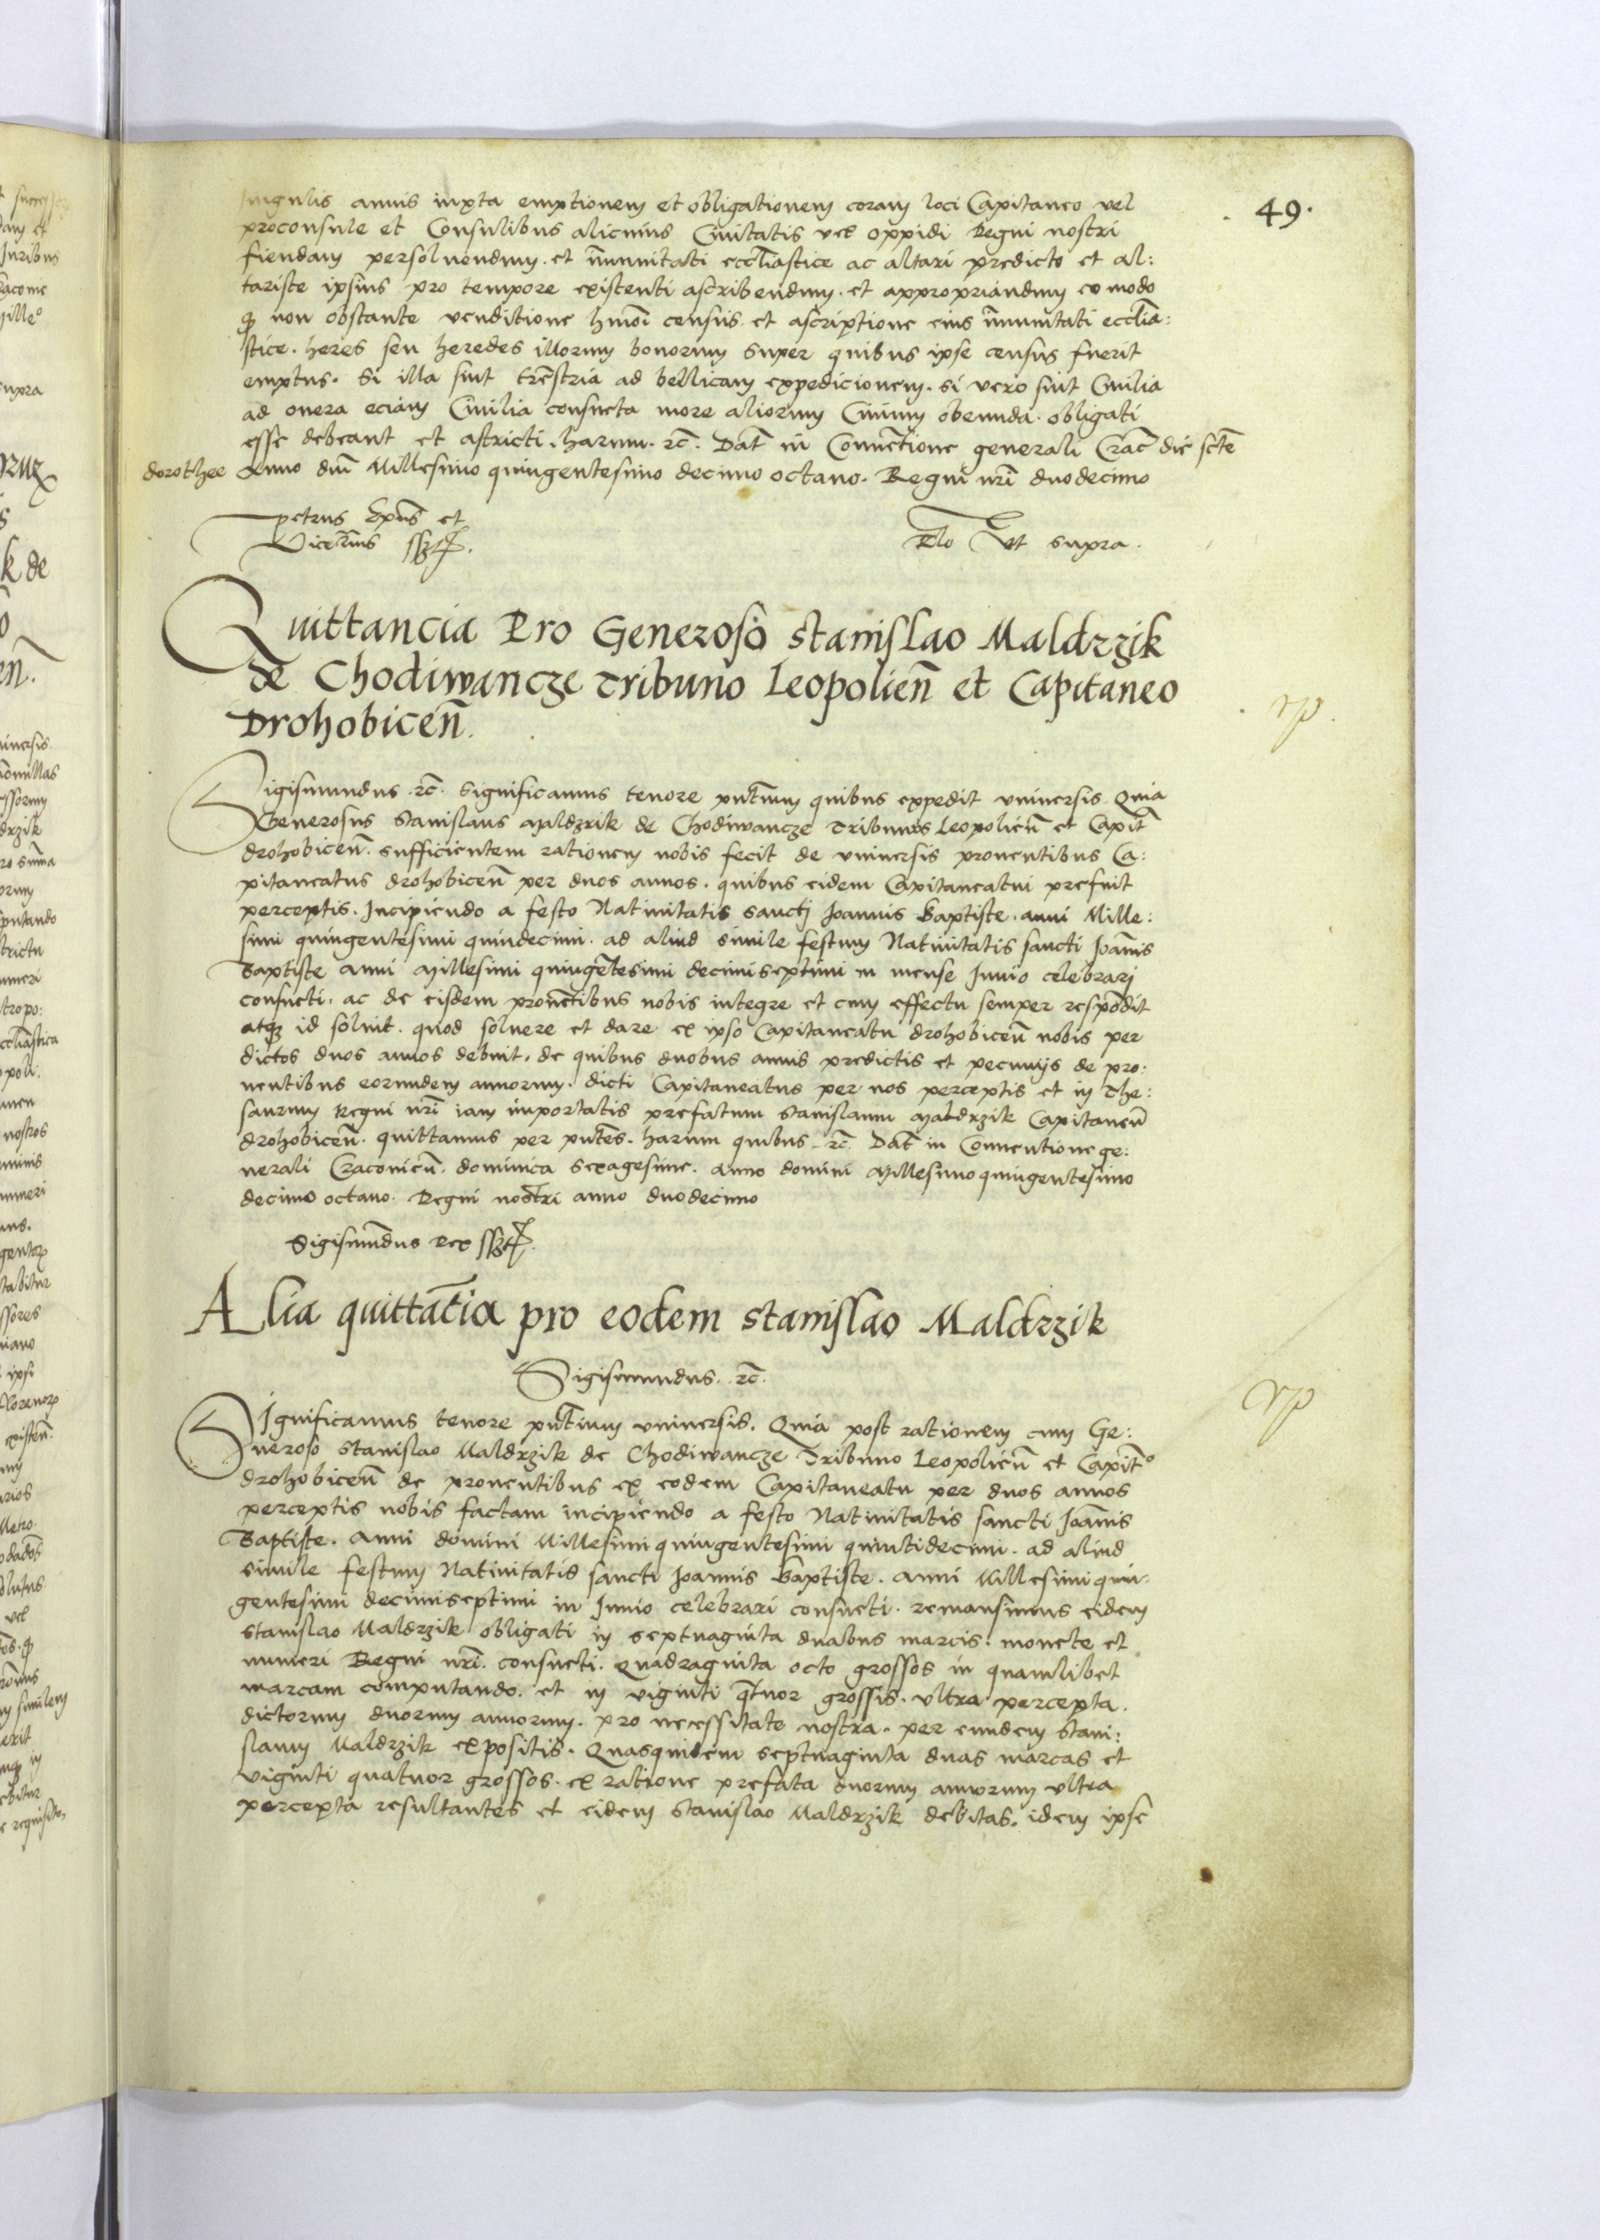 singulis annis iuxta emptionem et obligationem coram loci Capitaneo vel
proconsule et Consulibus alicuius Civitatis vel oppidi Regni nostri
fiendam persolvendum. et īmunitati eccl̄iastice ac altari predicto et al:
tariste ipsius pro tempore existenti ascribendum. et appropriandum eo modo
ꝙ non obstante venditione hmōi census. et ascriptione eius īmunitati eccl̄ia:
stice. heres seu heredes illorum bonorum super quibus ipse census fuerit
emptus. Si illa sint tr̄estria ad bellicam expedicionem. si vero sint Civilia
ad onera eciam Civilia consueta more aliorum Civium obeunda. obligati
esse debeant et astricti. harum. ꝛc̄. Dat̄ in Conuēctione generali Crac̄ die sct̄e
dorothee Anno dni̅ Millesimo quingentesimo decimo octavo. Regni nr̄i duodecimo
petrus Ep̄us et
Vicecan̄rius sszt.
Rlo Ut supra.
49.
Quittancia Pro Generoso Stanislao Maldrzik
de Chodiwancze Tribuno Leopolien̄ et Capitaneo
Drohobicen̄.
rp.
Sigismundus. ꝛc̄. Significamus tenore pn̄tium quibus expedit universis. Quia
Generosus Stanislaus Maldrzik de Chodiwancze Tribunus Leopolien̄ et Capit̄
drohobicen̄. sufficientem rationem nobis fecit de universis proventibus Ca:
pitaneatus drohobicen̄ per duos annos. quibus eidem Capitaneatui prefuit
perceptis. Incipiendo a festo Nativitatis sancti Joannis Baptiste. anni Mille:
simi quingentesimi quindecimi. ad aliud simile festum Nativitatis sancti Joan̄is
Baptiste anni Millesimi quingēntesimi decimiseptimi in mense Junio celebrari
consueti. ac de eisdem provēntibus nobis integre et cum effectu semper respōdit
atqꝫ id solvit. quod solvere et dare ex ipso Capitaneatu drohobicen̄ nobis per
dictos duos annos debuit. de quibus duobus annis predictis et pecunijs de pro:
ventibus eorundem annorum. dicti Capitaneatus per nos perceptis et in The:
saurum Regni nr̄i iam importatis prefatum Stanislaum Maldrzik Capitaneū
drohobicen̄. quittamus per pn̄tes. harum quibus. ꝛc̄. Dat̄ in Conventione ge:
nerali Cracovien̄. dominica sexagesime. anno domini Millesimo quingentesimo
decimo octavo. Regni nostri anno duodecimo
Sigismūdus Rex sszt.
Alia quittatīa pro eodem Stanislao Maldrzik
Sigismundus. ꝛc̄.
rp
Significamus tenore pn̄tium universis. Quia post rationem cum Ge:
neroso Stanislao Maldrzik de Chodiwancze Tribuno Leopolien̄ et Capit̄o
drohobicen̄ de proventibus ex eodem Capitaneatu per duos annos
perceptis nobis factam incipiendo a festo Nativitatis sancti Joan̄is
Baptiste. Anni domini Millesimi quingentesimi quintidecimi. ad aliud
simile festum Nativitatis sancti Joannis Baptiste. anni Millesimi quin-
gentesimi decimiseptimi in Junio celebrari consueti. remansimus eidem
Stanislao Maldrzik obligati in septuaginta duabus marcis. monete et
numeri Regni nr̄i. consueti. Quadraginta octo grossos in quamlibet
marcam computando. et in viginti qt̄uor grossis. ultra percepta.
dictorum duorum annorum. pro necessitate nostra. per eundem Stani:
slaum Maldrzik expositis. Quasquidem septuaginta duas marcas et
viginti quatuor grossos. ex ratione prefata duorum annorum ultra
percepta resultantes et eidem Stanislao Maldrzik debitas. idem ipse